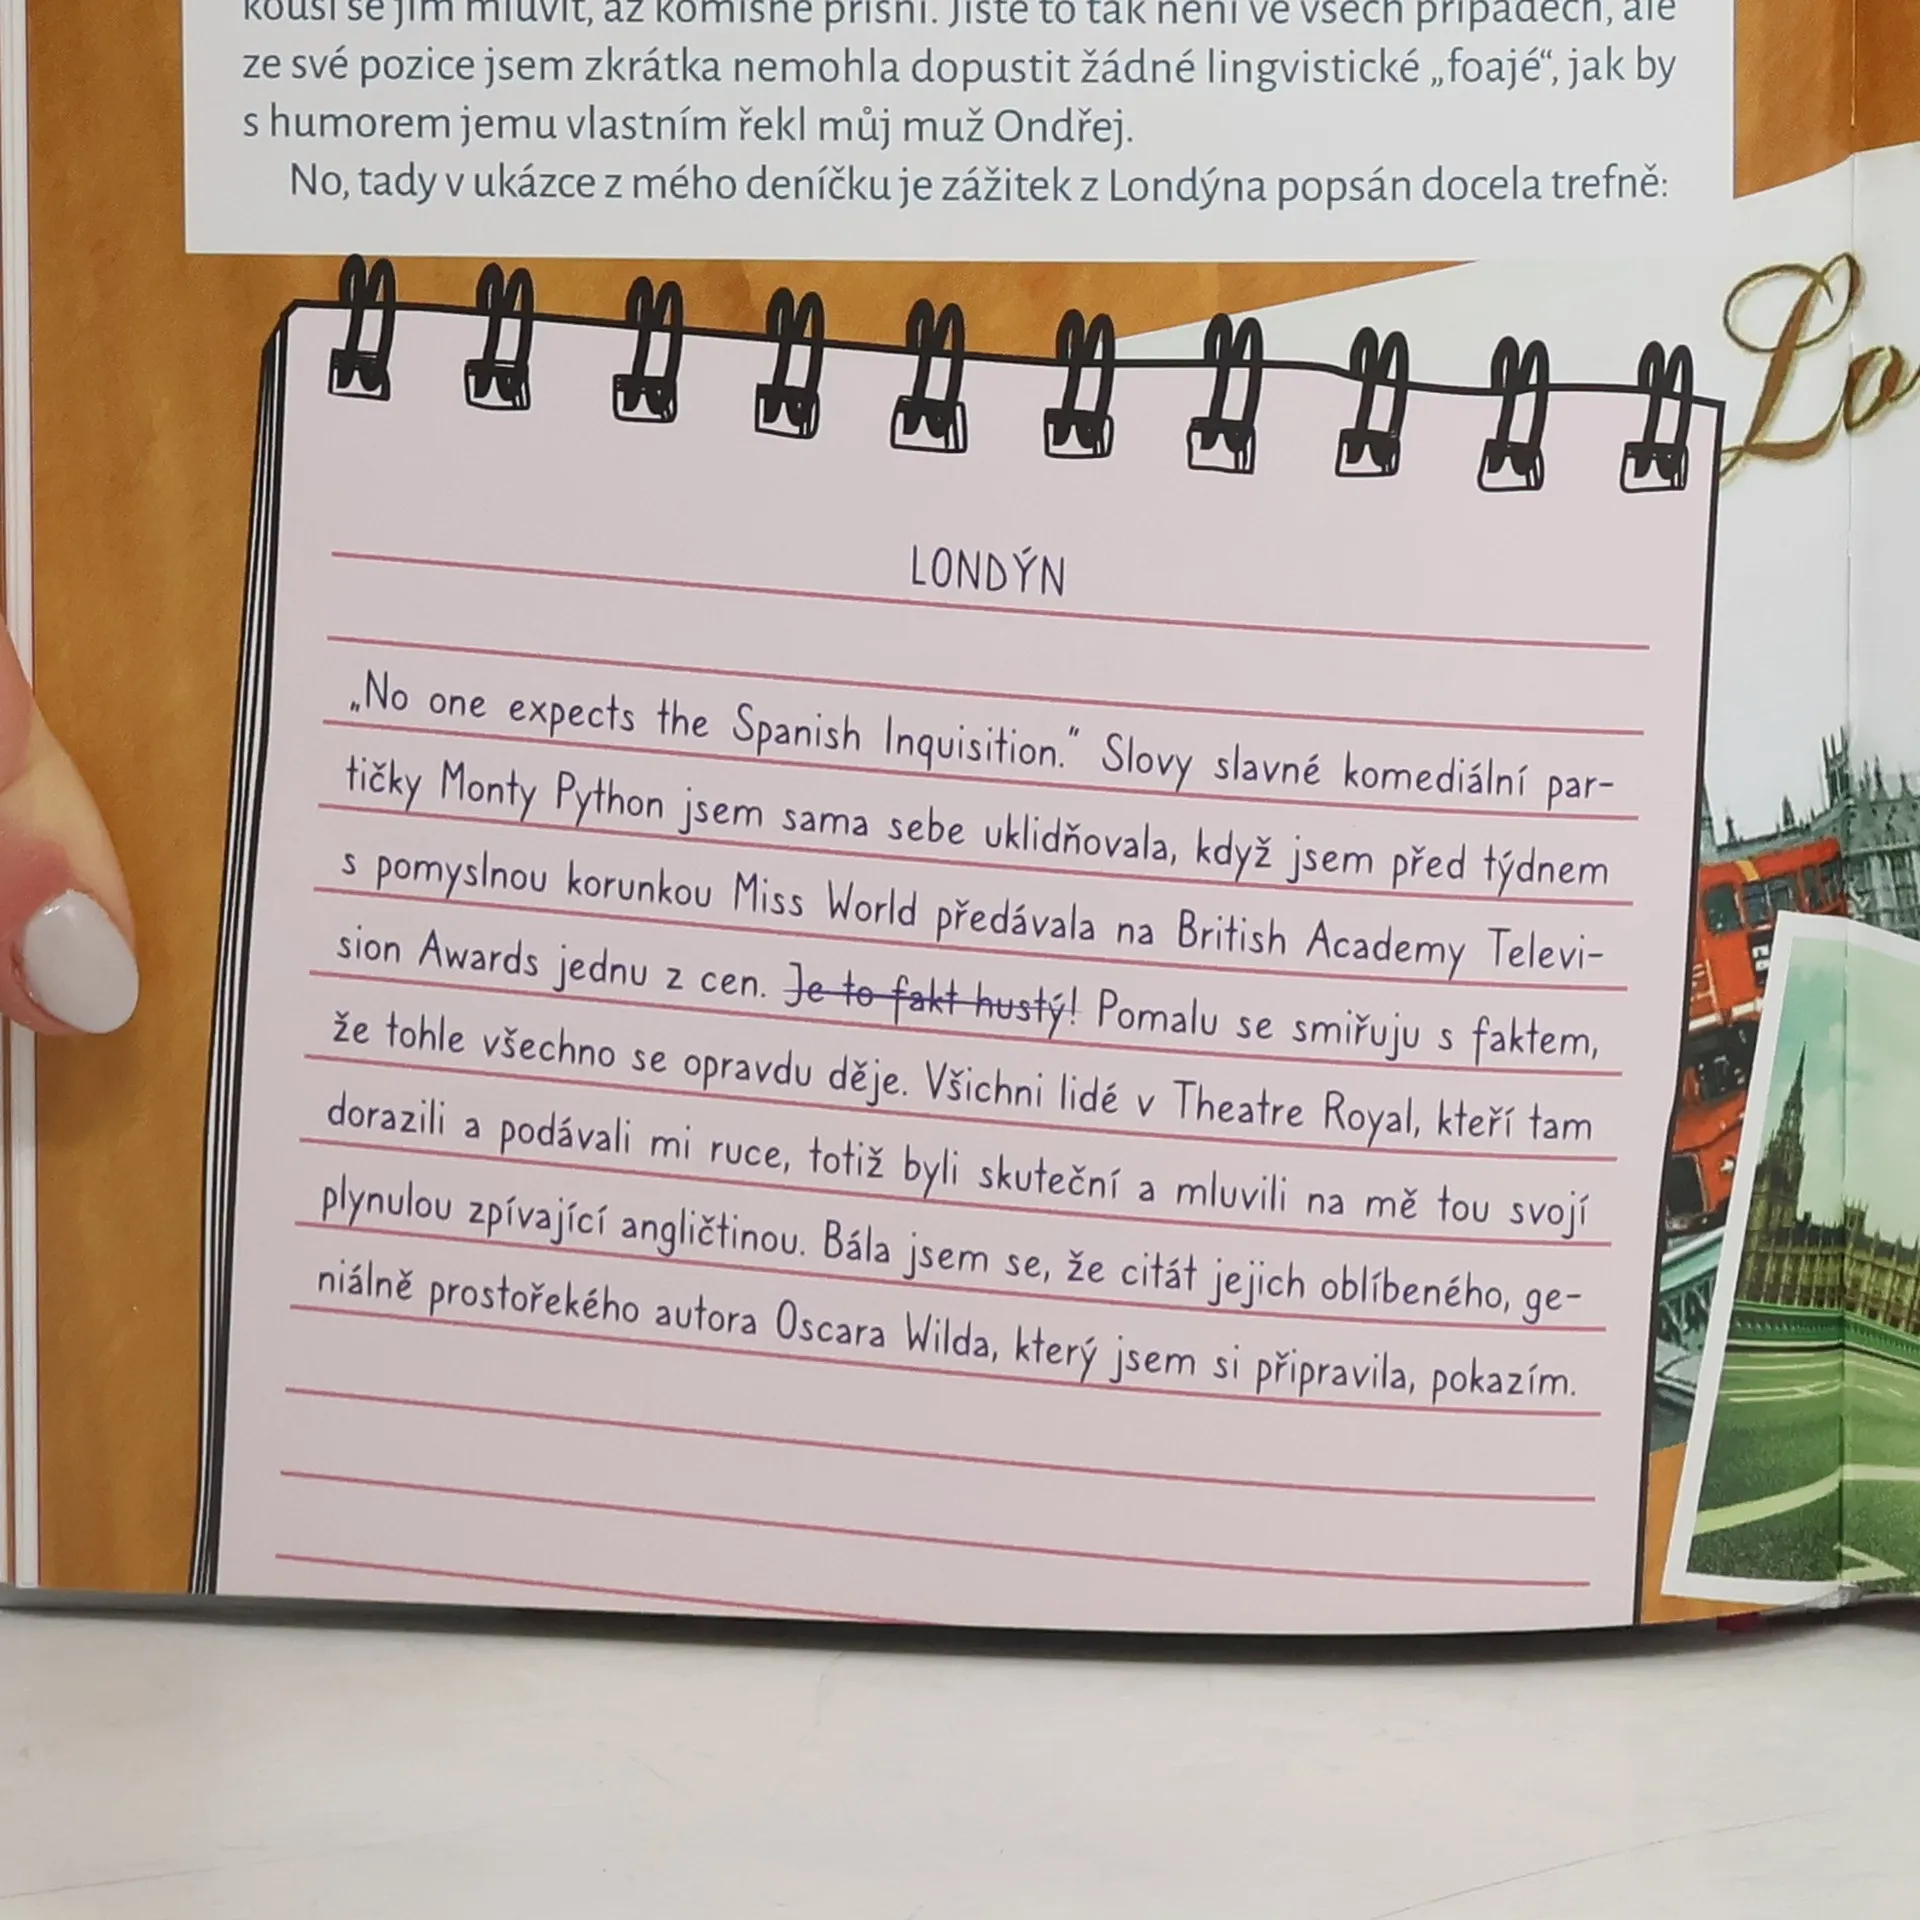 kouší se jím mluvit, až komisně přísní. Jistě to tak není ve všech případech, ale
ze své pozice jsem zkrátka nemohla dopustit žádné lingvistické „foajé“, jak by
s humorem jemu vlastním řekl můj muž Ondřej.
No, tady v ukázce z mého deníčku je zážitek z Londýna popsán docela trefně:
Lo
LONDÝN
„No one expects the Spanish Inquisition.“ Slovy slavné komediální par-
tičky Monty Python jsem sama sebe uklidňovala, když jsem před týdnem
s pomyslnou korunkou Miss World předávala na British Academy Televi-
sion Awards jednu z cen. Je to fakt hustý! Pomalu se smiřuju s faktem,
že tohle všechno se opravdu děje. Všichni lidé v Theatre Royal, kteří tam
dorazili a podávali mi ruce, totiž byli skuteční a mluvili na mě tou svojí
plynulou zpívající angličtinou. Bála jsem se, že citát jejich oblíbeného, ge-
niálně prostořekého autora Oscara Wilda, který jsem si připravila, pokazím.